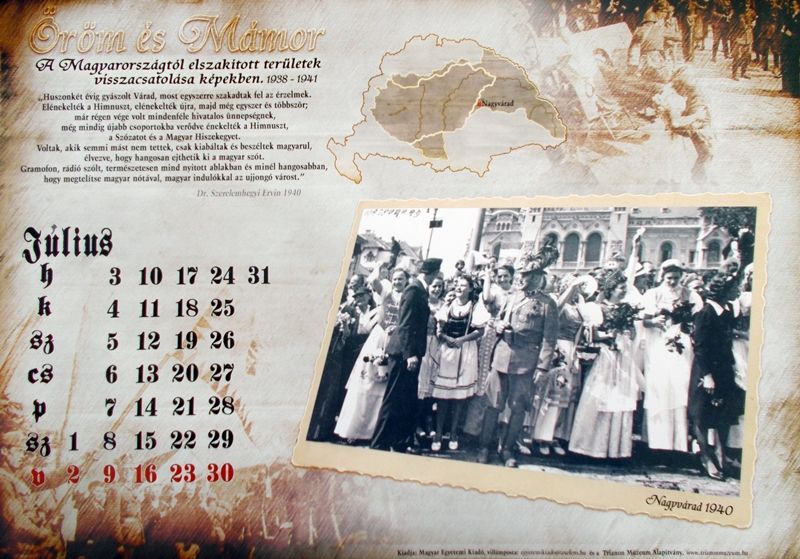 Öröm és Mámor
A Magyarországtól elszakított területek
visszacsatolása képekben. 1938 - 1941
„Huszonkét évig gyászolt Várad, most egyszerre szakadtak fel az érzelmek.
Elénekelték a Himnuszt, elénekelték újra, majd még egyszer és többször;
már régen vége volt mindenféle hivatalos ünnepségnek,
még mindig újabb csoportokba verődve énekelték a Himnuszt,
a Szózatot és a Magyar Hiszekegyet.
Voltak, akik semmi mást nem tettek, csak kiabáltak és beszéltek magyarul,
élvezve, hogy hangosan ejthetik ki a magyar szót.
Gramofon, rádió szólt, természetesen mind nyitott ablakban és minél hangosabban,
hogy megteljen magyar nótával, magyar indulókkal az ujjongó várost."
Dr. Szerelemhegyi Ervin 1940
Nagyvárad
Július
h 3 10 17 24 31
k 4 11 18 25
sz 5 12 19 26
cs 6 13 20 27
p 7 14 21 28
sz 1 8 15 22 29
v 2 9 16 23 30
Nagyvárad 1940
Kiadja: Magyar Egyetemi Kiadó, villámposta: és a Trianon Múzeum Alapítvány. www.trianonmuzeum.hu